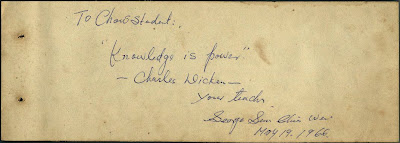 To Chan Student:
"Knowledge is power"
— Charles Dicken —
your teacher
George Sem Chin Wen
MAY 19. 1966